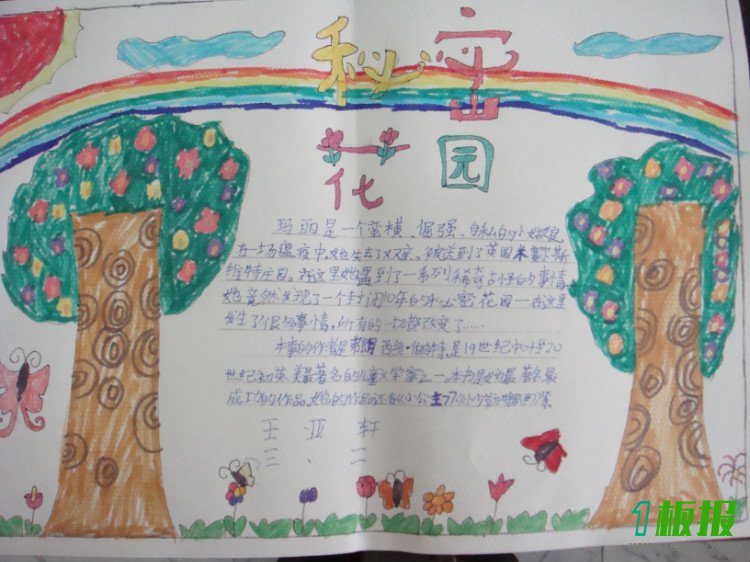 秘密
花园
玛丽是一个蛮横、倔强、自私的小姑娘
在一场瘟疫中,她失去了双亲。被送到了英国米歇尔斯
维特庄园。在这里她遇到了一系列稀奇古怪的事情。
她竟然发现了一个封闭10年的秘密花园—在这里
发生了很多事情,所有的一切都改变了……
本书的作者是 西丝·伯内特,是19世纪中叶至20
世纪初英、美最著名的儿童文学家之一。本书是她最著名最
成功的作品。她的作品还有《小公主》
王亚轩
三、二
1板报